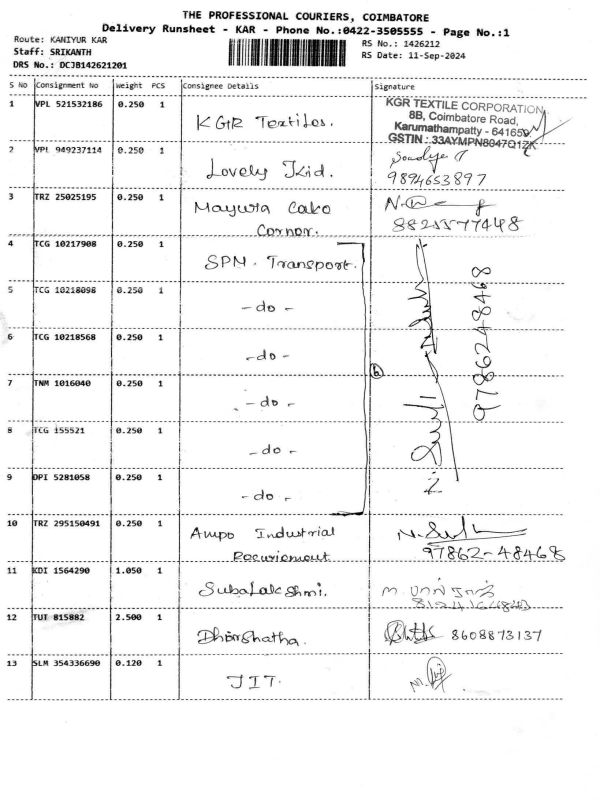 THE PROFESSIONAL COURIERS, COIMBATORE
Delivery Runsheet - KAR - Phone No.:0422-3505555 - Page No.:1
Route: KANIYUR KAR
Staff: SRIKANTH
DRS No.: DCJB142621201
RS No.: 1426212
RS Date: 11-Sep-2024
S NO Consignment No Weight PCS Consignee Details Signature
1 VPL 521532186 0.250 1 KGR Textiles.
KGR TEXTILE CORPORATION
8B, Coimbatore Road,
Karumathampatty - 641659
GSTIN : 33AYMPN8047Q1ZK
2 VPL 949237114 0.250 1 Lovely Kid.
9894653897
3 TRZ 25025195 0.250 1 Mayura Cake
Cornor.
8825577448
4 TCG 10217908 0.250 1 SPM. Transport.
5 TCG 10218098 0.250 1 -do-
6 TCG 10218568 0.250 1 -do-
7 TNM 1016040 0.250 1 -do-
8 TCG 155521 0.250 1 -do-
9 DPI 5281058 0.250 1 -do-
6
9786248468
10 TRZ 295150491 0.250 1 Ampo Industrial
97862-48468
11 KDI 1564290 1.050 1 SubaLakshmi.
12 TUT 815882 2.500 1 Dharshatha.
8608873137
13 SLM 354336690 0.120 1 JIT.